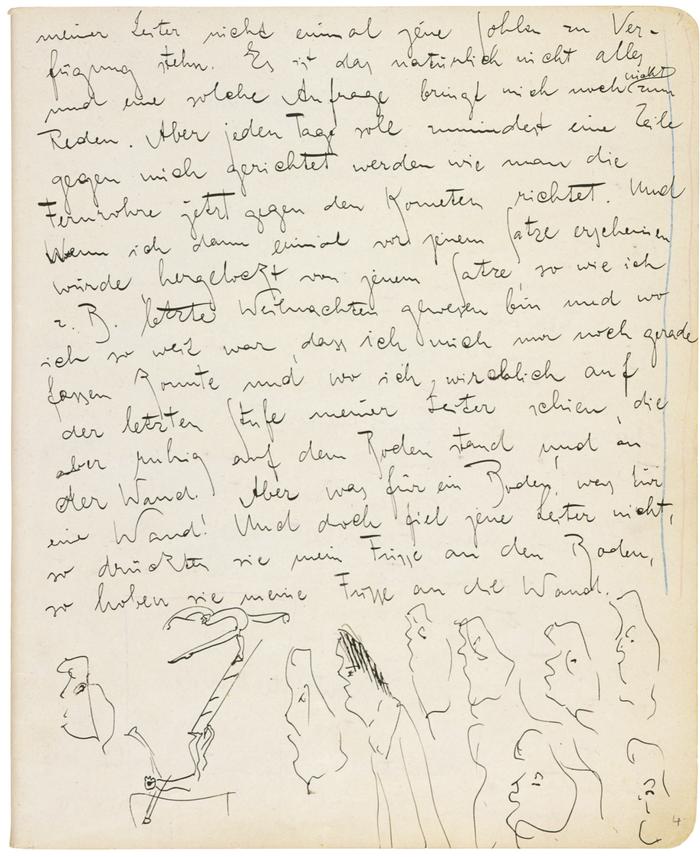 meiner Leiter nicht einmal jene Sohlen zu Ver-
fügung stehn. Es ist das natürlich nicht alles
und eine solche Anfrage bringt mich noch nicht zum
Reden. Aber jeden Tag soll zumindest eine Zeile
gegen mich gerichtet werden wie man die
Fernrohre jetzt gegen den Kometen richtet. Und
Wenn ich dann einmal vor jenem Satze erscheinen
würde hergelockt von jenem Satze, so wie ich
z. B. letzte Weihnachten gewesen bin und wo
ich so weit war, dass ich mich nur noch gerade
fassen konnte und wo ich wirklich auf
der letzten Stufe meiner Leiter schien, die
aber ruhig auf dem Boden stand und an
der Wand. Aber was für ein Boden, was für
eine Wand! Und doch fiel jene Leiter nicht,
so drückten sie mein Füsse an den Boden,
so hoben sie meine Füsse an die Wand.
4